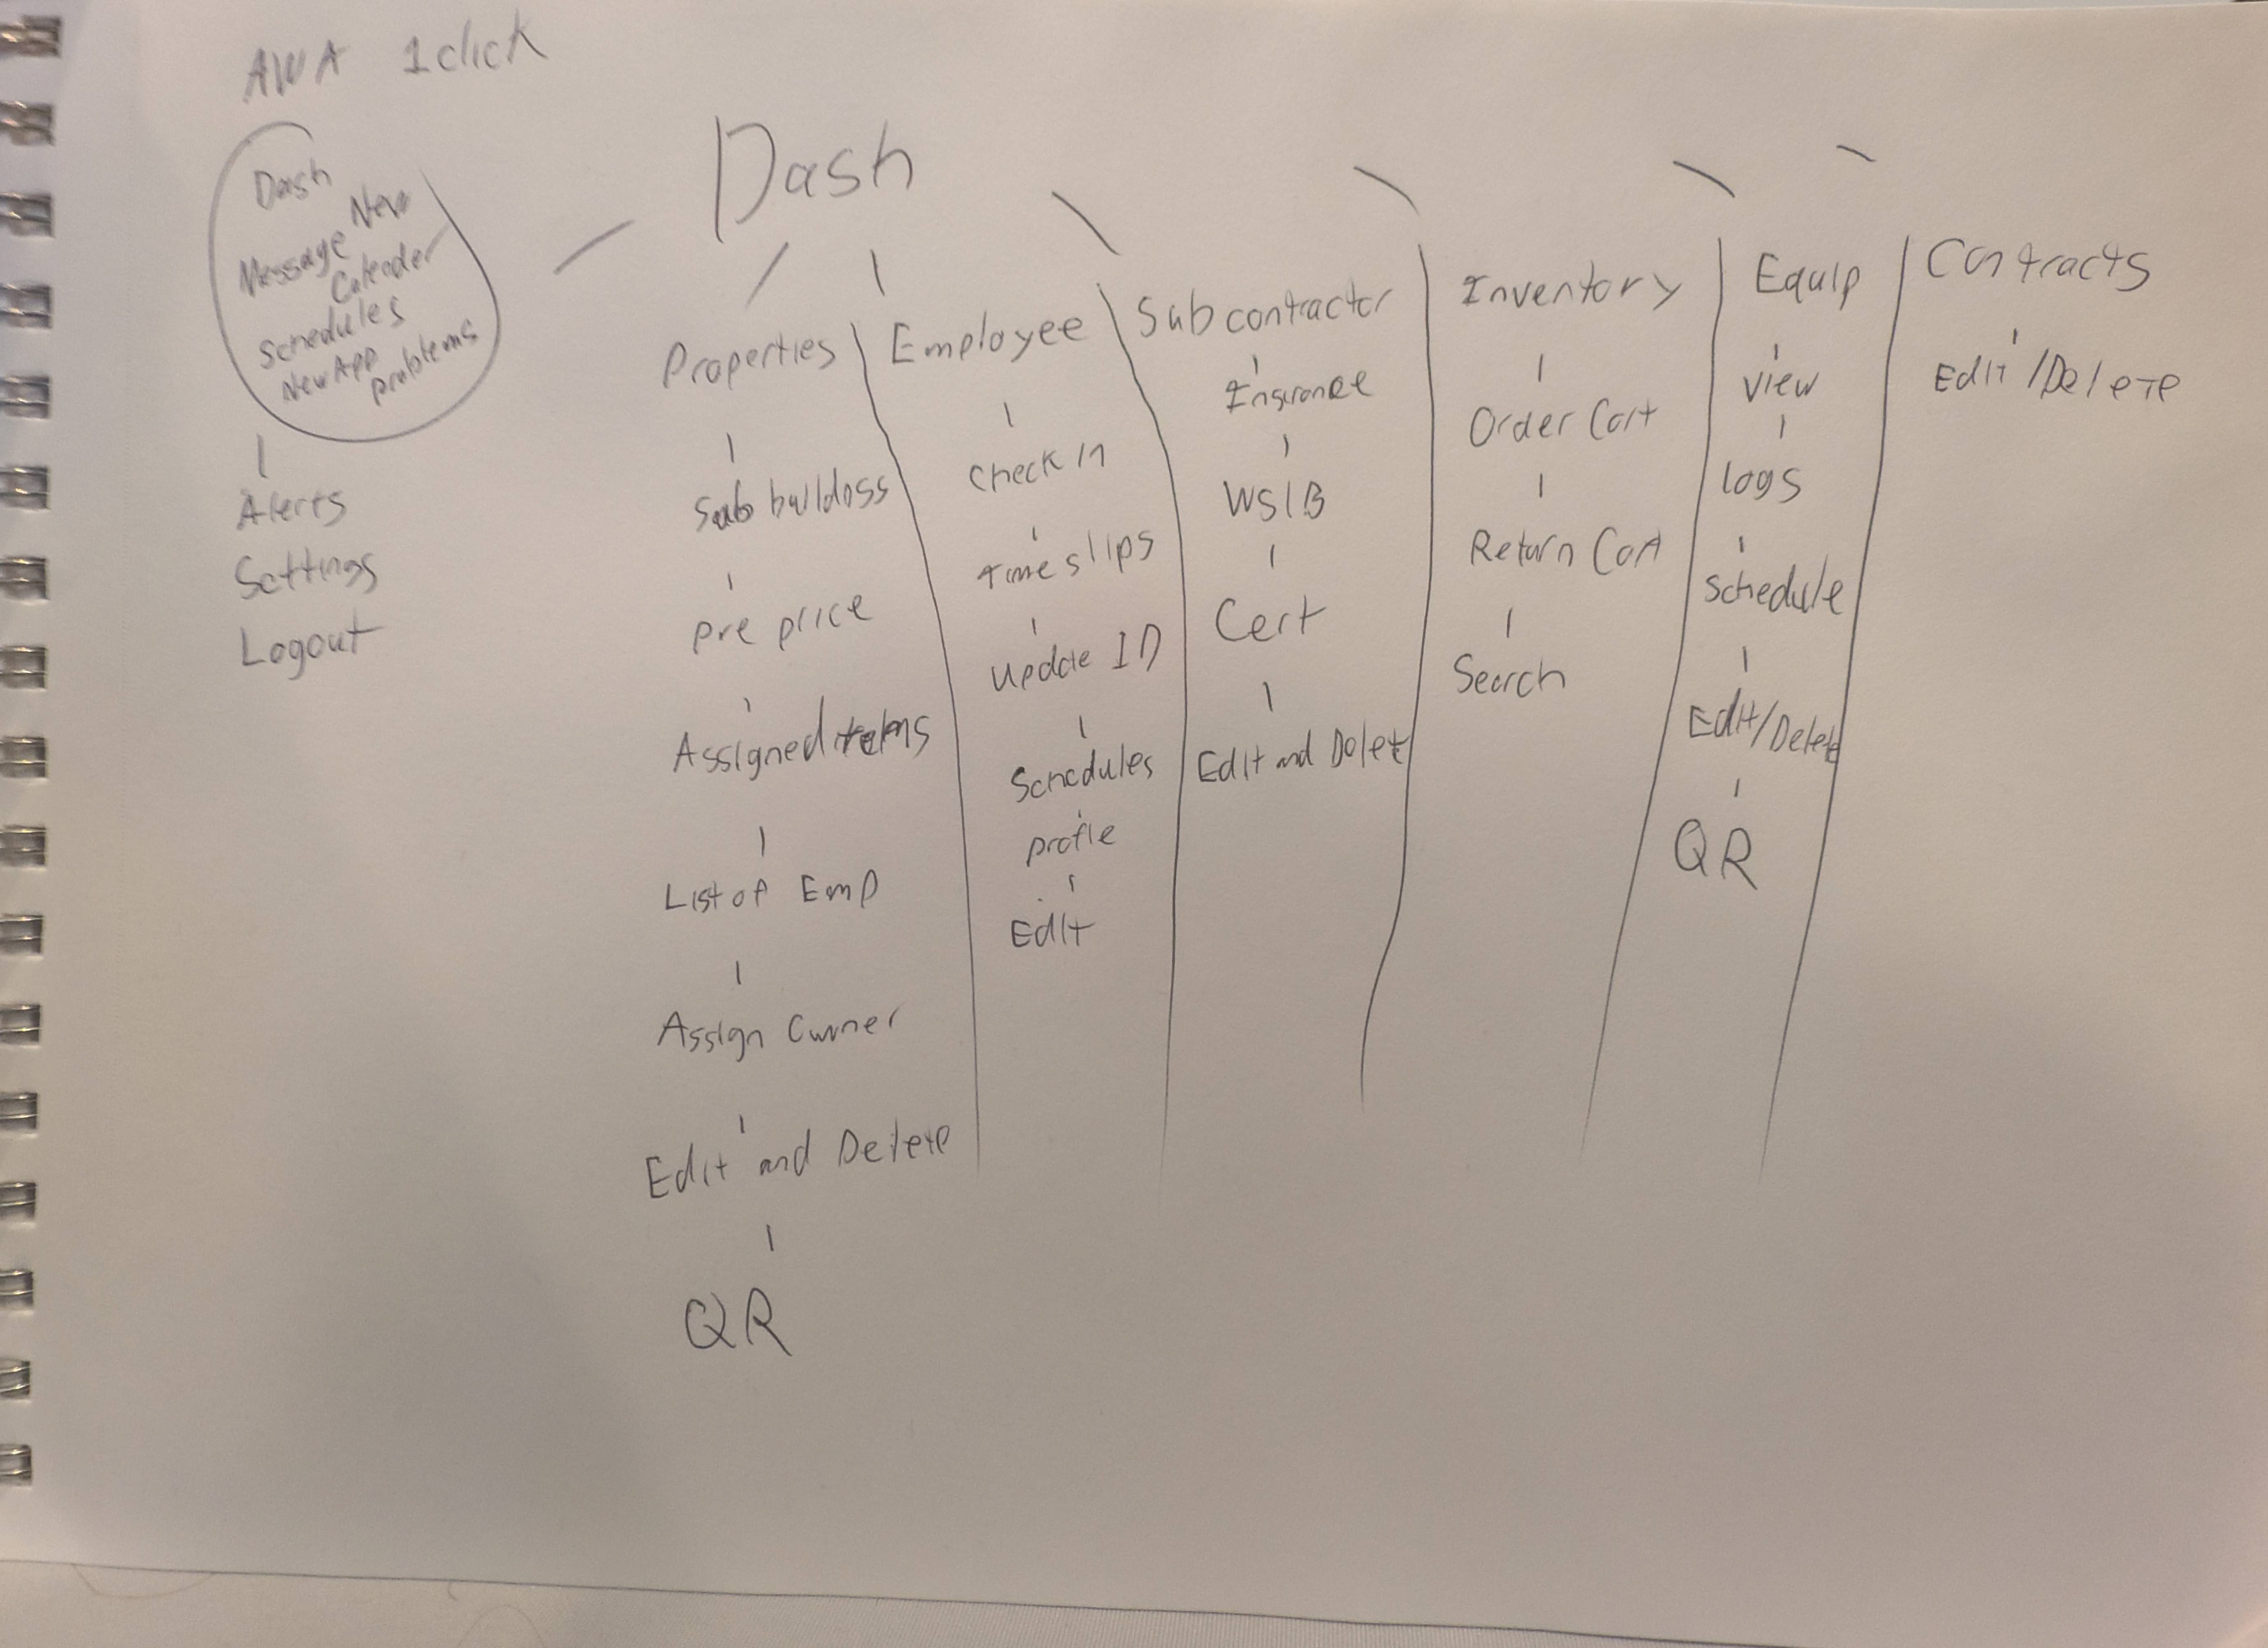 AWA 1click
Dash
Message New
Calender
Schedules
New App
problems
Alerts
Settings
Logout
Dash
Properties
Sub
pre price
Assigned
List of Emp
Assign Owner
Edit and Delete
QR
Employee
Check in
time slips
update ID
Schedules
profile
Edit
Subcontractor
WSIB
Cert
Edit and Delete
Inventory
Order Cart
Return Cart
Search
Equip
view
logs
schedule
Edit/Delete
QR
Contracts
Edit/Delete